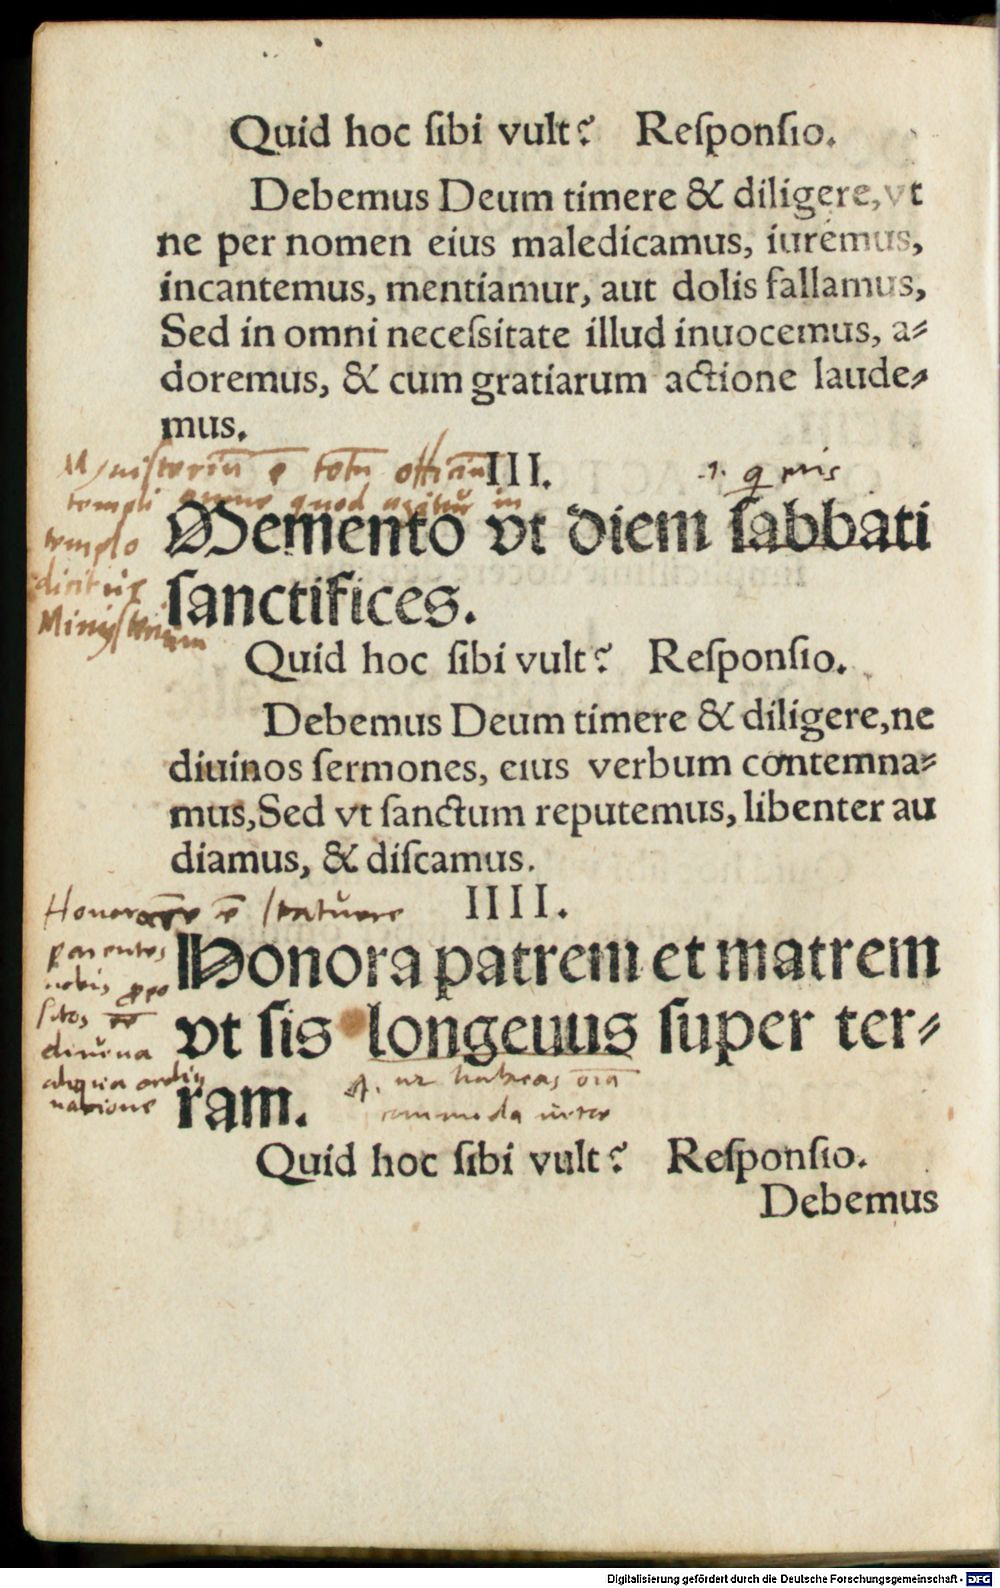 Quid hoc ſibi vult? Reſponſio.
Debemus Deum timere & diligere, vt
ne per nomen eius maledicamus, iuremus,
incantemus, mentiamur, aut dolis fallamus,
Sed in omni neceſsitate illud inuocemus, a⸗
doremus, & cum gratiarum actione laude⸗
mus.
Mÿniſteriū ē totū officiū
III.
templi omne quod agitur in
templo
dicitur
Miniſterium
Memento vt diem ſabbati
ſanctifices.
Quid hoc ſibi vult? Reſponſio.
Debemus Deum timere & diligere, ne
diuinos ſermones, eius verbum contemna⸗
mus, Sed vt ſanctum reputemus, libenter au
diamus, & diſcamus.
IIII.
ē ſtatuere
parentes
nobis
ſitos
diuina
aliqua ordi
natione
Honora patrem et matrem
vt ſis longeuus ſuper ter⸗
ram.
ut habeas oīa
commoda
Quid hoc ſibi vult? Reſponſio.
Debemus
Digitalisierung gefördert durch die Deutsche Forschungsgemeinschaft - DFG